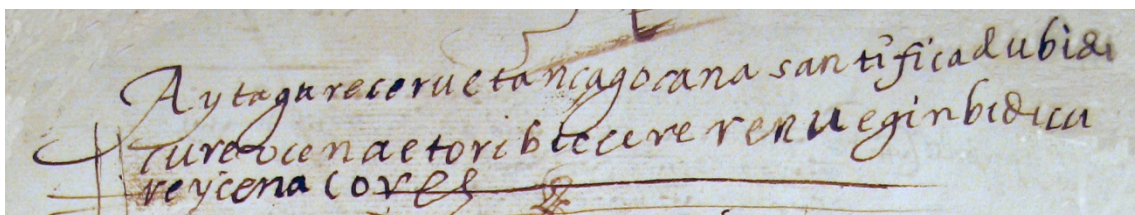 Aytagurecerue tançagocana santificadubidi
çureocena etorib tecere renu eginbidicu
reycena corel